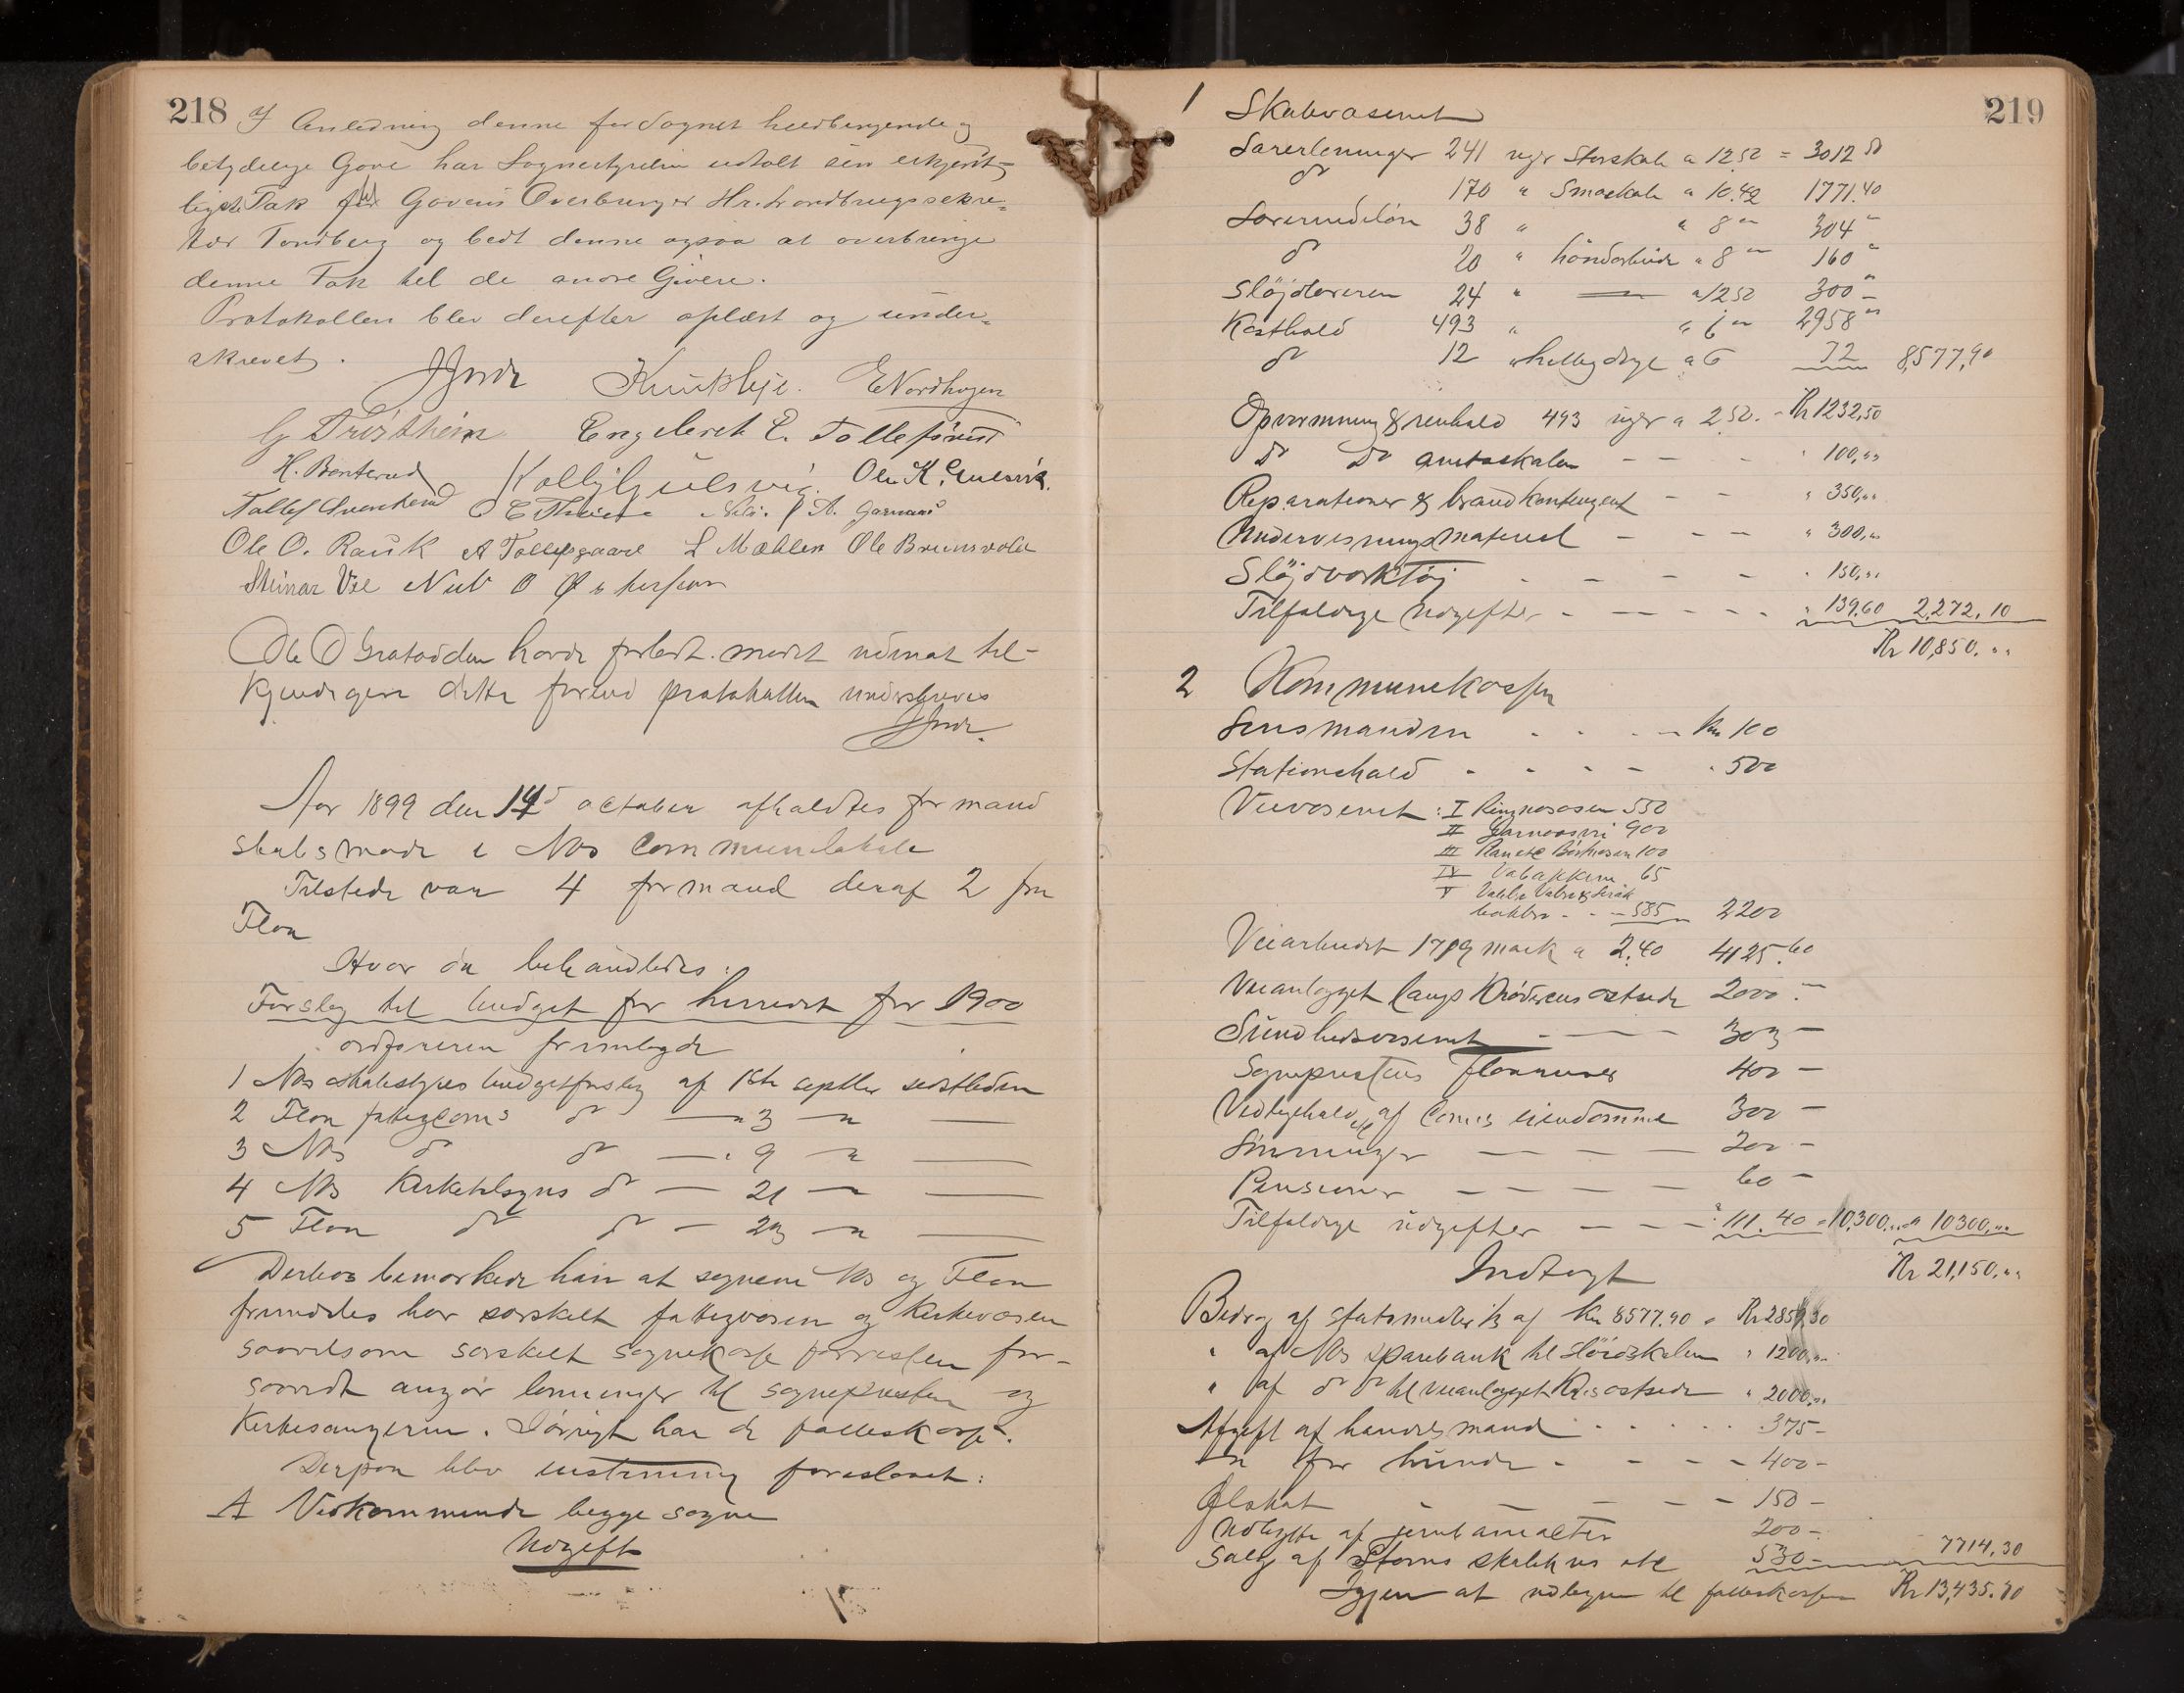 218
I Anledning denne for Sognet hædbringende og
betydelige Gave har Sognestyrelsen udtalt sin erkjendt-
ligste Tak til Gavens Overbringer Hr. Landbrugssekre-
tær Tandberg og bedt denne ogsaa at overbringe
denne Tak til de andre Givere.
Protokollen blev derefter oplæst og under-
skrevet.
Knut Skje. E Nordhagen
G Trøstheim Engebret E. Tollefsrud
H. Benterud Kolbj. Gulsvig. Ole K. Gulsvik.
Tollef Svenkerud E Thoen Nils P A. Garnaas
Ole O. Rauk A Tollefsgaard L Mæhlen Ole Bruunsvold
Steinar Vøl Nub O
Ole O Grataadden havde forladt mødet uden at til-
kjendegive dette førend protokollen underskreves
Aar 1899 den 14d october afholdtes formand
skabsmøde i Næs Communelokale
Tilstede var 4 formænd deraf 2 fra
Flaa
Hvor da behandledes:
Forslag til budget for herredet for 1900
ordføreren fremlagde
1 Næs skolestyres budgetforslag af 18te septbr sidstleden
2 Flaa fattigcoms do — 3 — " —
3 Næs do do — 9 — " —
4 Næs Kirketilsyns do — 21 — " —
5 Flaa do do — 23 — " —
Derhos bemærkede han at sognene Næs og Flaa
fremdeles har særskilt fattigvæsen og Kirkevæsen
saavelsom særskilt sognekasse forresten for-
saavidt angaar lønninger til sognepresten og
Kirkesangeren. Iøvrigt har de fælleskasse.
Derpaa blev indstilling foreslaaet:
A Vedkommende begge sogne
Udgift
219
1 Skolevæsenet
Lærerlønninger 241 uger Storskole a 12.50 = 3012 50
do 170 " Smaskole a 10.42 1771.40
Lærerindeløn 38 " " 8 " 304 "
do 20 " haandarbeide " 8 " 160 "
Sløjdlæreren 24 " — a 12 50 300 "
Kosthold 493 " " 6 " 2958 "
do 12 " helligdage a 6 72 8,577,90
Opvarmning & renhold 493 uger a 2.50. - Kr 1232,50
Do Do amtsskolen — — - " 100,""
Reparationer & brandkontingent - - " 350,""
Undervisningsmateriel - - - " 300,""
Sløjdværktøj - - - - " 150,""
Tilfældige Udgifter - - - - - " 139.60 2,272,10
Kr 10,850. ""
2 Kommunekassen
Lensmanden - - - - Kr 100
Stationshold - - - - " 500
Veivæsenet: I Ringnesaasen 550
II Garnaasvei 900
III 100
IV 65
V
bakker - - - 585 2200
Veiarbeidet 1719 mark a 2.40 4125.60
Veianlægget langs Krøderens østside 2000 "
Sundhedsvæsenet - - - 303 -
Sogneprestens 400 -
Vedligehold af Coms eiendomme 300 -
Lønninger - - - - 200 -
Pensioner - - - - 60 -
Tilfældige udgifter - - - " 111.40 = 10,300,"" 10300,""
Kr 21,150.""
Indtægt
Bidrag af Statsmidler 1/3 af Kr 8577.90 = Kr 2859,30
" af Næs sparebank til Sløidskolen " 1200,""
" af do do til veianlægget Krs østside " 2000,""
Afgift af handelsmænd - - - - - 375-
" for hunde - - - - 400-
Ølskat - - - - - 150-
Udbytte af jernbaneaktier 200-
Salg af Storms skolehus 530- 7714.30
Igjen at udligne til fælleskassen Kr 13,435.70